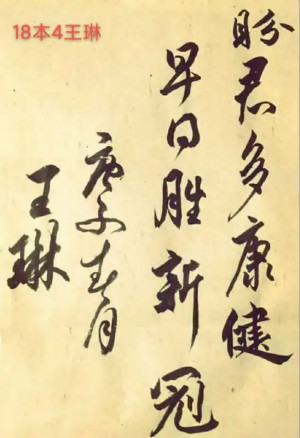 18本4王琳
盼君多康健
早日胜新冠
庚子春月
王琳